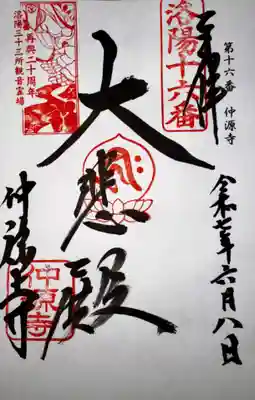 第十六番 仲源寺
奉拝
洛陽十六番
令和七年六月八日
大悲殿
再興二十周年
洛陽三十三所観音霊場
仲源寺
仲源寺